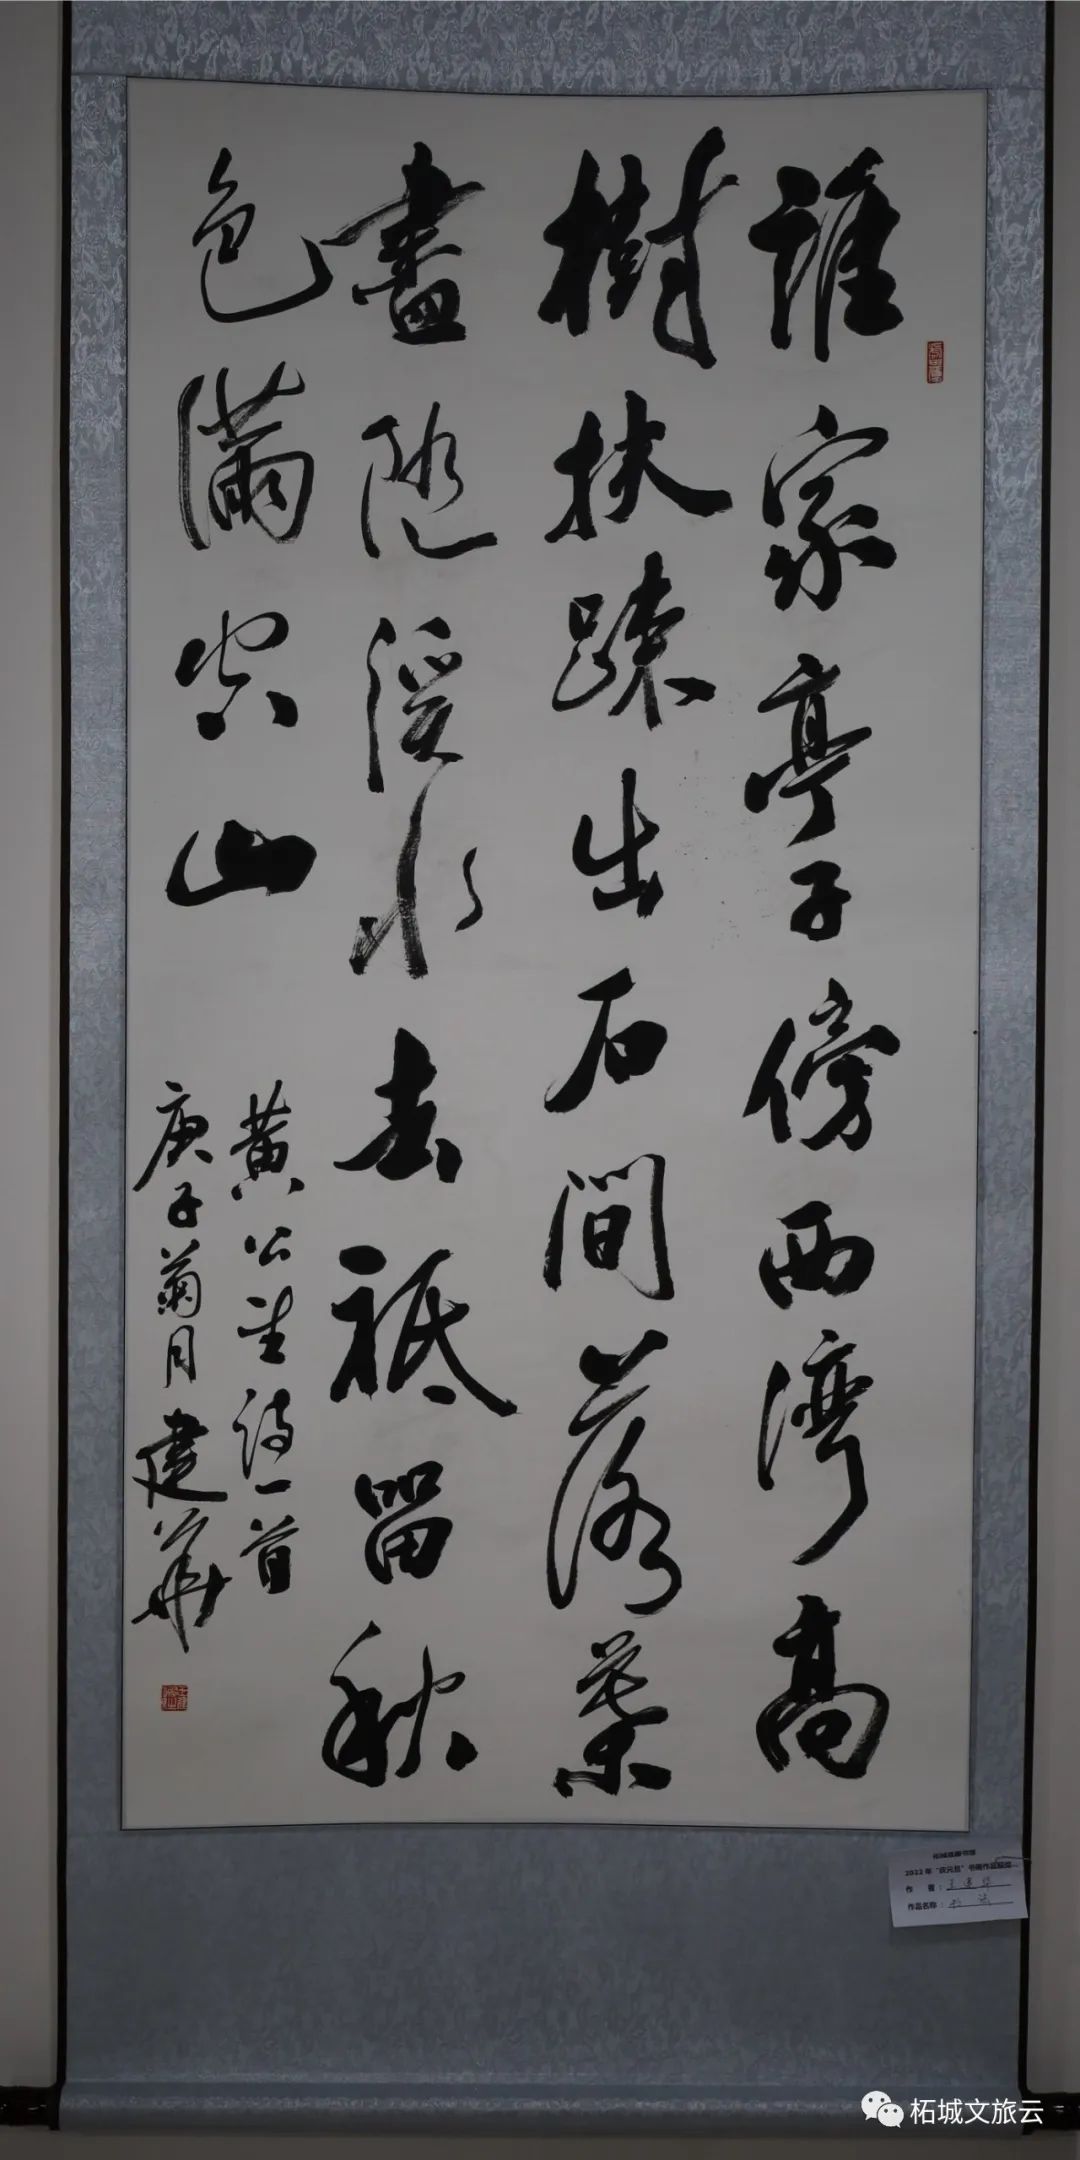 誰家亭子傍西灣高
樹扶踈出石間落葉
盡隨溪水去祗留秋
色滿空山
黄公望詩一首
庚子菊月建華
2022年"庆元旦"书画作品展览
作 者：王建华
作品名称：书法
柘城文旅云